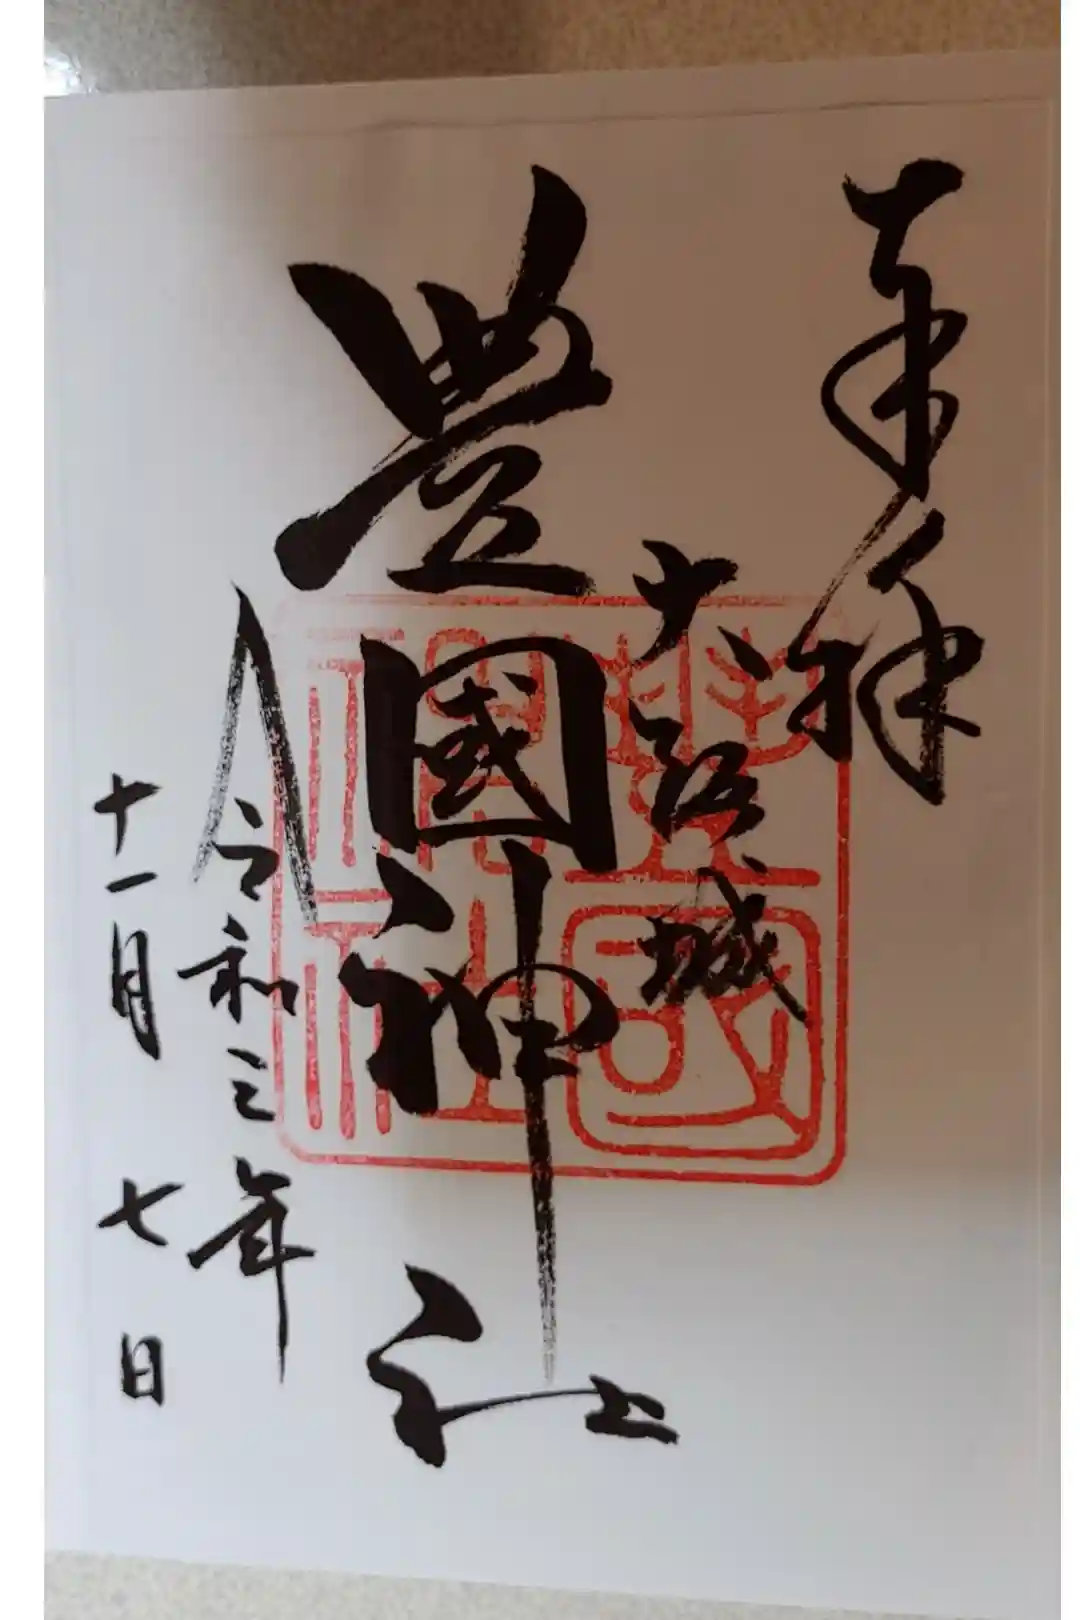 奉拝
大阪城
豊國神社
令和三年
十一月七日
豊國神社